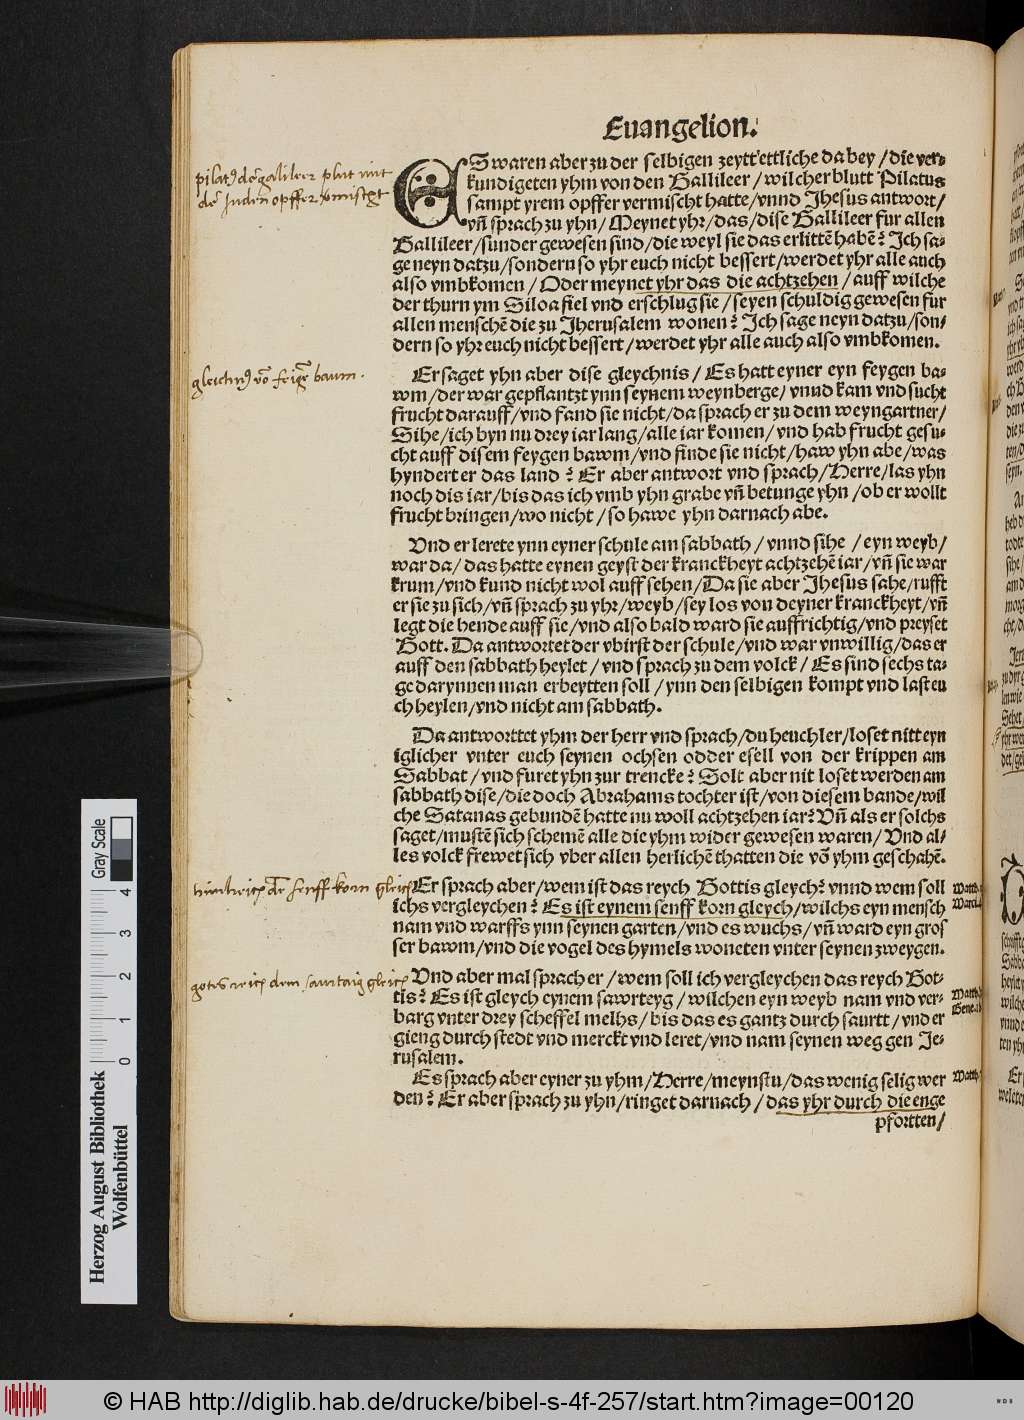 Euangelion.
ES waren aber zu der selbigen zeytt ettliche da bey / die ver⸗
kundigeten yhm von den Gallileer / wilcher blutt Pilatus
sampt yrem opffer vermischt hatte / vnnd Jhesus antwort /
vñ sprach zu yhn / Meynet yhr / das / dise Gallileer fur allen
Gallileer / sunder gewesen sind / die weyl sie das erlittē habē? Ich sa⸗
ge neyn datzu / sondern so yhr euch nicht bessert / werdet yhr alle auch
also vmbkomen / Oder meynet yhr das die achtzehen / auff wilche
der thurn ym Siloa fiel vnd erschlug sie / seyen schuldig gewesen fur
allen menschē die zu Jherusalem wonen? Ich sage neyn datzu / son⸗
dern so yhr euch nicht bessert / werdet yhr alle auch also vmbkomen.
gleichnꝰ vō feigē baum.
Er saget yhn aber dise gleychnis / Es hatt eyner eyn feygen ba⸗
wm / der war gepflantzt ynn seynem weynberge / vnud kam vnd sucht
frucht darauff / vnd fand sie nicht / da sprach er zu dem weyngartner /
Sihe / ich byn nu drey iar lang / alle iar komen / vnd hab frucht gesu⸗
cht auff disem feygen bawm / vnd finde sie nicht / haw yhn abe / was
hyndert er das land? Er aber antwort vnd sprach / Herre / las yhn
noch dis iar / bis das ich vmb yhn grabe vñ betunge yhn / ob er wollt
frucht bringen / wo nicht / so hawe yhn darnach abe.
Vnd er lerete ynn eyner schule am sabbath / vnnd sihe / eyn weyb /
war da / das hatte eynen geyst der kranckheyt achtzehē iar / vñ sie war
krum / vnd kund nicht wol auff sehen / Da sie aber Jhesus sahe / rufft
er sie zu sich / vñ sprach zu yhr / weyb / sey los von deyner kranckheyt / vñ
legt die hende auff sie / vnd also bald ward sie auffrichtig / vnd preyset
Gott. Da antwortet der vbirst der schule / vnd war vnwillig / das er
auff den sabbath heylet / vnd sprach zu dem volck / Es sind sechs ta⸗
ge darynnen man erbeytten soll / ynn den selbigen kompt vnd last eu
ch heylen / vnd nicht am sabbath.
Da antworttet yhm der herr vnd sprach / du heuchler / loset nitt eyn
iglicher vnter euch seynen ochsen odder esell von der krippen am
Sabbat / vnd furet yhn zur trencke? Solt aber nit loset werden am
sabbath dise / die doch Abrahams tochter ist / von diesem bande / wil
che Satanas gebundē hatte nu woll achtzehen iar? Vñ als er solchs
saget / mustē sich schemē alle die yhm wider gewesen waren / Vnd al⸗
les volck frewet sich vber allen herlichē thatten die vō yhm geschahē.
Er sprach aber / wem ist das reych Gottis gleych? vnnd wem soll
ichs vergleychen? Es ist eynem senff korn gleych / wilchs eyn mensch
nam vnd warffs ynn seynen garten / vnd es wuchs / vñ ward eyn gros
ser bawm / vnd die vogel des hymels woneten vnter seynen zweygen.
gotes reich dem saurtaig gleich
Vnd aber mal sprach er / wem soll ich vergleychen das reych Got⸗
tis? Es ist gleych eynem sawrteyg / wilchen eyn weyb nam vnd ver⸗
barg vnter drey scheffel melhs / bis das es gantz durch saurtt / vnd er
gieng durch stedt vnd merckt vnd leret / vnd nam seynen weg gen Je⸗
rusalem.
Es sprach aber eyner zu yhm / Herre / meynstu / das wenig selig wer
den? Er aber sprach zu yhn / ringet darnach / das yhr durch die enge
pfortten /
Gray Scale
0 1 2 3 4
Herzog August Bibliothek
Wolfenbüttel
© HAB http://diglib.hab.de/drucke/bibel-s-4f-257/start.htm?image=00120